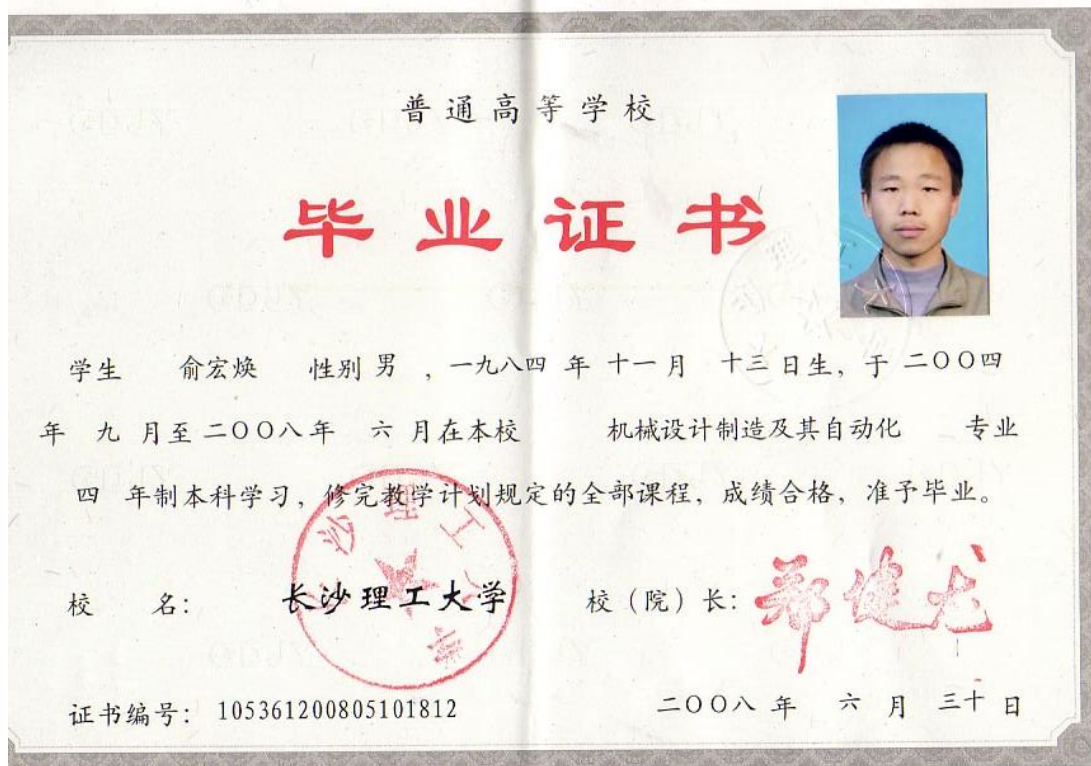 普通高等学校
毕业证书
学生 俞宏焕 性别 男 ,一九八四 年 十一月 十三 日生,于 二〇〇四
年 九 月至 二〇〇八年 六 月在本校 机械设计制造及其自动化 专业
四 年制本科学习,修完教学计划规定的全部课程,成绩合格,准予毕业。
校 名: 长沙理工大学 校(院)长: 郑健龙
证书编号: 105361200805101812 二〇〇八 年 六 月 三十 日